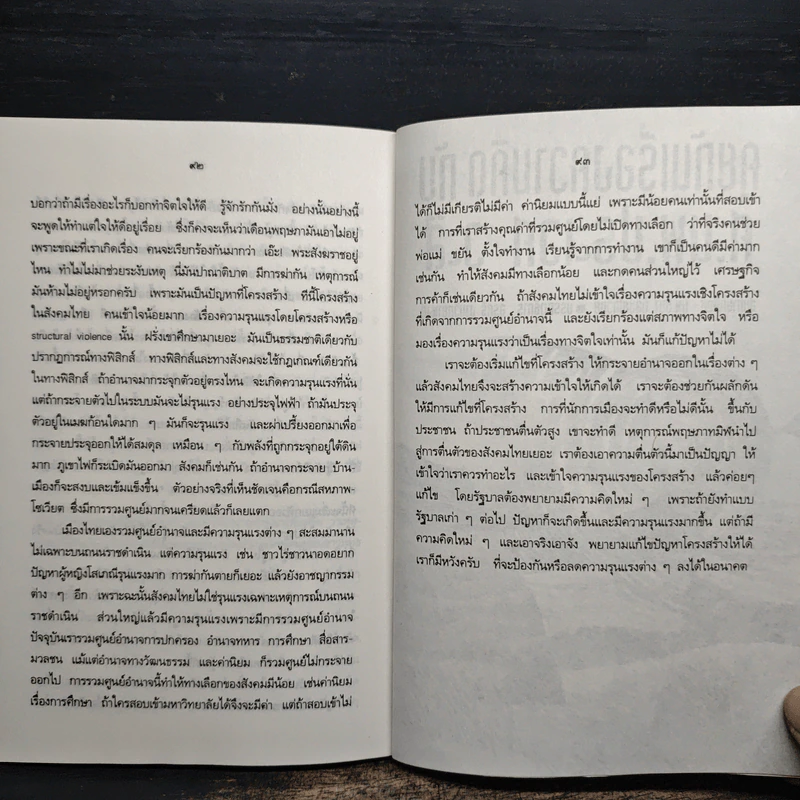 ๙๒
บอกว่าถ้ามีเรื่องอะไรก็บอกทำจิตใจให้ดี รู้จักรักกันมั่ง อย่างนั้นอย่างนี้
จะพูดให้ทำแต่ใจให้ดีอยู่เรื่อย ซึ่งก็คงจะเห็นว่าเดือนพฤษภามันเอาไม่อยู่
เพราะขณะที่เราเกิดเรื่อง คนจะเรียกร้องกันมากว่า เอ๊ะ! พระสังฆราชอยู่
ไหน ทำไมไม่มาช่วยระงับเหตุ นี่มันปาณาติบาต มีการฆ่ากัน เหตุการณ์
มันห้ามไม่อยู่หรอกครับ เพราะมันเป็นปัญหาที่โครงสร้าง ทีนี้โครงสร้าง
ในสังคมไทย คนเข้าใจน้อยมาก เรื่องความรุนแรงโดยโครงสร้างหรือ
structural violence นั้น ฝรั่งเขาศึกษามาเยอะ มันเป็นธรรมชาติเดียวกับ
ปรากฏการณ์ทางฟิสิกส์ ทางฟิสิกส์และทางสังคมจะใช้กฎเกณฑ์เดียวกัน
ในทางฟิสิกส์ ถ้าอำนาจมากระจุกตัวอยู่ตรงไหน จะเกิดความรุนแรงที่นั่น
แต่ถ้ากระจายตัวไปในระบบมันจะไม่รุนแรง อย่างประจุไฟฟ้า ถ้ามันประจุ
ตัวอยู่ในเมฆก้อนใดมาก ๆ มันก็จะรุนแรง และผ่าเปรี้ยงออกมาเพื่อ
กระจายประจุออกให้ได้สมดุล เหมือน ๆ กับพลังที่ถูกกระจุกอยู่ใต้ดิน
มาก ภูเขาไฟก็ระเบิดมันออกมา สังคมก็เช่นกัน ถ้าอำนาจกระจาย บ้าน-
เมืองก็จะสงบและเข้มแข็งขึ้น ตัวอย่างจริงที่เห็นชัดเจนคือกรณีสหภาพ-
โซเวียต ซึ่งมีการรวมศูนย์มากจนเครียดแล้วก็เลยแตก
เมืองไทยเองรวมศูนย์อำนาจและมีความรุนแรงต่าง ๆ สะสมมานาน
ไม่เฉพาะบนถนนราชดำเนิน แต่ความรุนแรง เช่น ชาวไร่ชาวนาอดอยาก
ปัญหาผู้หญิงโสเภณีรุนแรงมาก การฆ่ากันตายก็เยอะ แล้วยังอาชญากรรม
ต่าง ๆ อีก เพราะฉะนั้นสังคมไทยไม่ใช่รุนแรงเฉพาะเหตุการณ์บนถนน
ราชดำเนิน ส่วนใหญ่แล้วมีความรุนแรงเพราะมีการรวมศูนย์อำนาจ
ปัจจุบันเรารวมศูนย์อำนาจการปกครอง อำนาจทหาร การศึกษา สื่อสาร-
มวลชน แม้แต่อำนาจทางวัฒนธรรม และค่านิยม ก็รวมศูนย์ไม่กระจาย
ออกไป การรวมศูนย์อำนาจนี้ทำให้ทางเลือกของสังคมมีน้อย เช่นค่านิยม
เรื่องการศึกษา ถ้าใครสอบเข้ามหาวิทยาลัยได้จึงจะมีค่า แต่ถ้าสอบเข้าไม่
๙๓
ได้ก็ไม่มีเกียรติไม่มีค่า ค่านิยมแบบนี้แย่ เพราะมีน้อยคนเท่านั้นที่สอบเข้า
ได้ การที่เราสร้างคุณค่าที่รวมศูนย์โดยไม่เปิดทางเลือก ว่าที่จริงคนช่วย
พ่อแม่ ขยัน ตั้งใจทำงาน เรียนรู้จากการทำงาน เขาก็เป็นคนดีมีค่ามาก
เช่นกัน ทำให้สังคมมีทางเลือกน้อย และกดคนส่วนใหญ่ไว้ เศรษฐกิจ
การค้าก็เช่นเดียวกัน ถ้าสังคมไทยไม่เข้าใจเรื่องความรุนแรงเชิงโครงสร้าง
ที่เกิดจากการรวมศูนย์อำนาจนี้ และยังเรียกร้องแต่สภาพทางจิตใจ หรือ
มองเรื่องความรุนแรงว่าเป็นเรื่องทางจิตใจเท่านั้น มันก็แก้ปัญหาไม่ได้
เราจะต้องเริ่มแก้ไขที่โครงสร้าง ให้กระจายอำนาจออกในเรื่องต่าง ๆ
แล้วสังคมไทยจึงจะสร้างความเข้าใจให้เกิดได้ เราจะต้องช่วยกันผลักดัน
ให้มีการแก้ไขที่โครงสร้าง การที่นักการเมืองจะทำดีหรือไม่ดีนั้น ขึ้นกับ
ประชาชน ถ้าประชาชนตื่นตัวสูง เขาจะทำดี เหตุการณ์พฤษภาทมิฬนำไป
สู่การตื่นตัวของสังคมไทยเยอะ เราต้องเอาความตื่นตัวนี้มาเป็นปัญญา ให้
เข้าใจว่าเราควรทำอะไร และเข้าใจความรุนแรงของโครงสร้าง แล้วค่อยๆ
แก้ไข โดยรัฐบาลต้องพยายามมีความคิดใหม่ ๆ เพราะถ้ายังทำแบบ
รัฐบาลเก่า ๆ ต่อไป ปัญหาก็จะเกิดขึ้นและมีความรุนแรงมากขึ้น แต่ถ้ามี
ความคิดใหม่ ๆ และเอาจริงเอาจัง พยายามแก้ไขปัญหาโครงสร้างให้ได้
เราก็มีหวังครับ ที่จะป้องกันหรือลดความรุนแรงต่าง ๆ ลงได้ในอนาคต